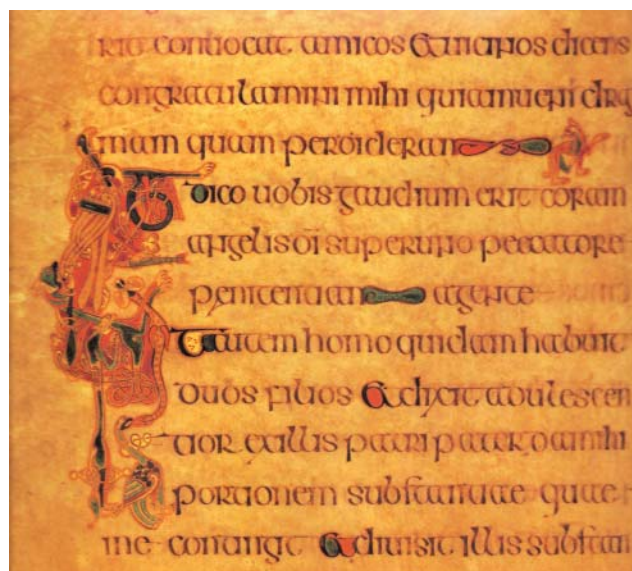 rit conuocat amicos & uicinos dicens
congratulamini mihi quia inueni drag
mam quam perdideram
Ita dico uobis gaudium erit coram
angelis di super uno peccatore
penitentiam agente
autem homo quidam habuit
duos filios & dixit adulescen
tior ex illis patri pater da mihi
portionem substantiae quae
me contingit & diuisit illis substan